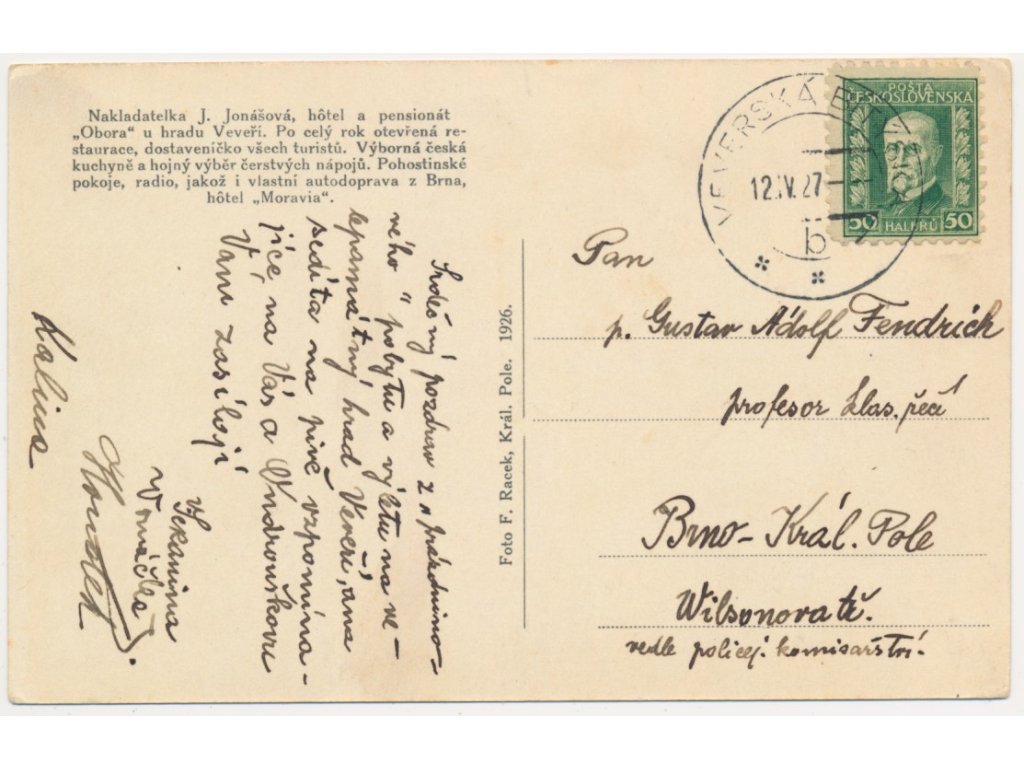 Nakladatelka J. Jonášová, hôtel a pensionát
„Obora“ u hradu Veveří. Po celý rok otevřená re-
staurace, dostaveníčko všech turistů. Výborná česká
kuchyně a hojný výběr čerstvých nápojů. Pohostinské
pokoje, radio, jakož i vlastní autodoprava z Brna,
hôtel „Moravia“.
Srdečný pozdrav z „prázdnino-
vého“ pobytu a výletu na ve-
lepamátný hrad Veveří, a na
sedíta na pivě vzpomína-
jíce na Vás a Ondrouškovu
Vam zasílají
Skanina
Vomáčka
Kalina
Foto F. Racek, Král. Pole. 1926.
VEVERSKÁ
12.IV.27
b
POŠTA
ČESKOSLOVENSKA
50 HALÉŘŮ 50
Pan
p. Gustav Adolf Fendrich
profesor
Brno - Král. Pole
Wilsonova tř.
vedle policej. komisařství.